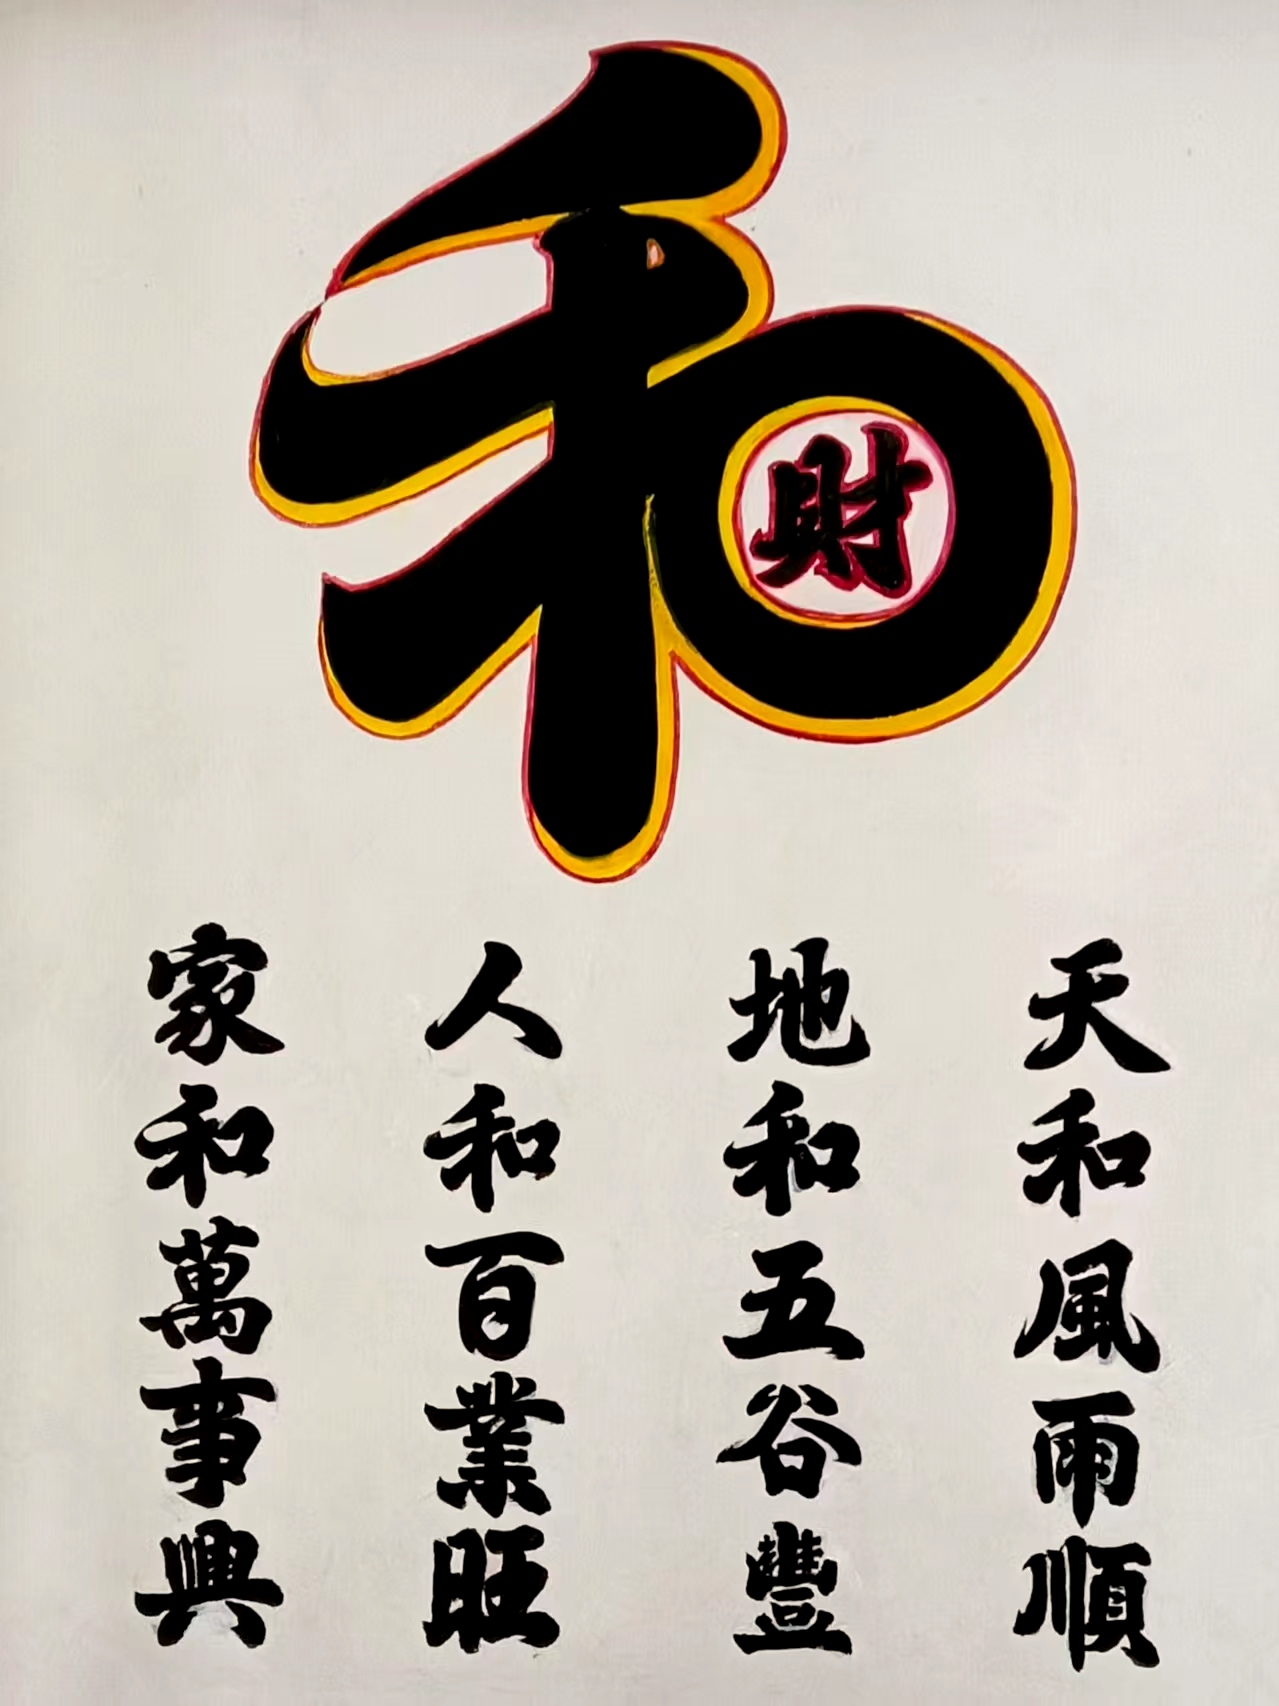 和
財
天和風雨順
地和五谷豐
人和百業旺
家和萬事興